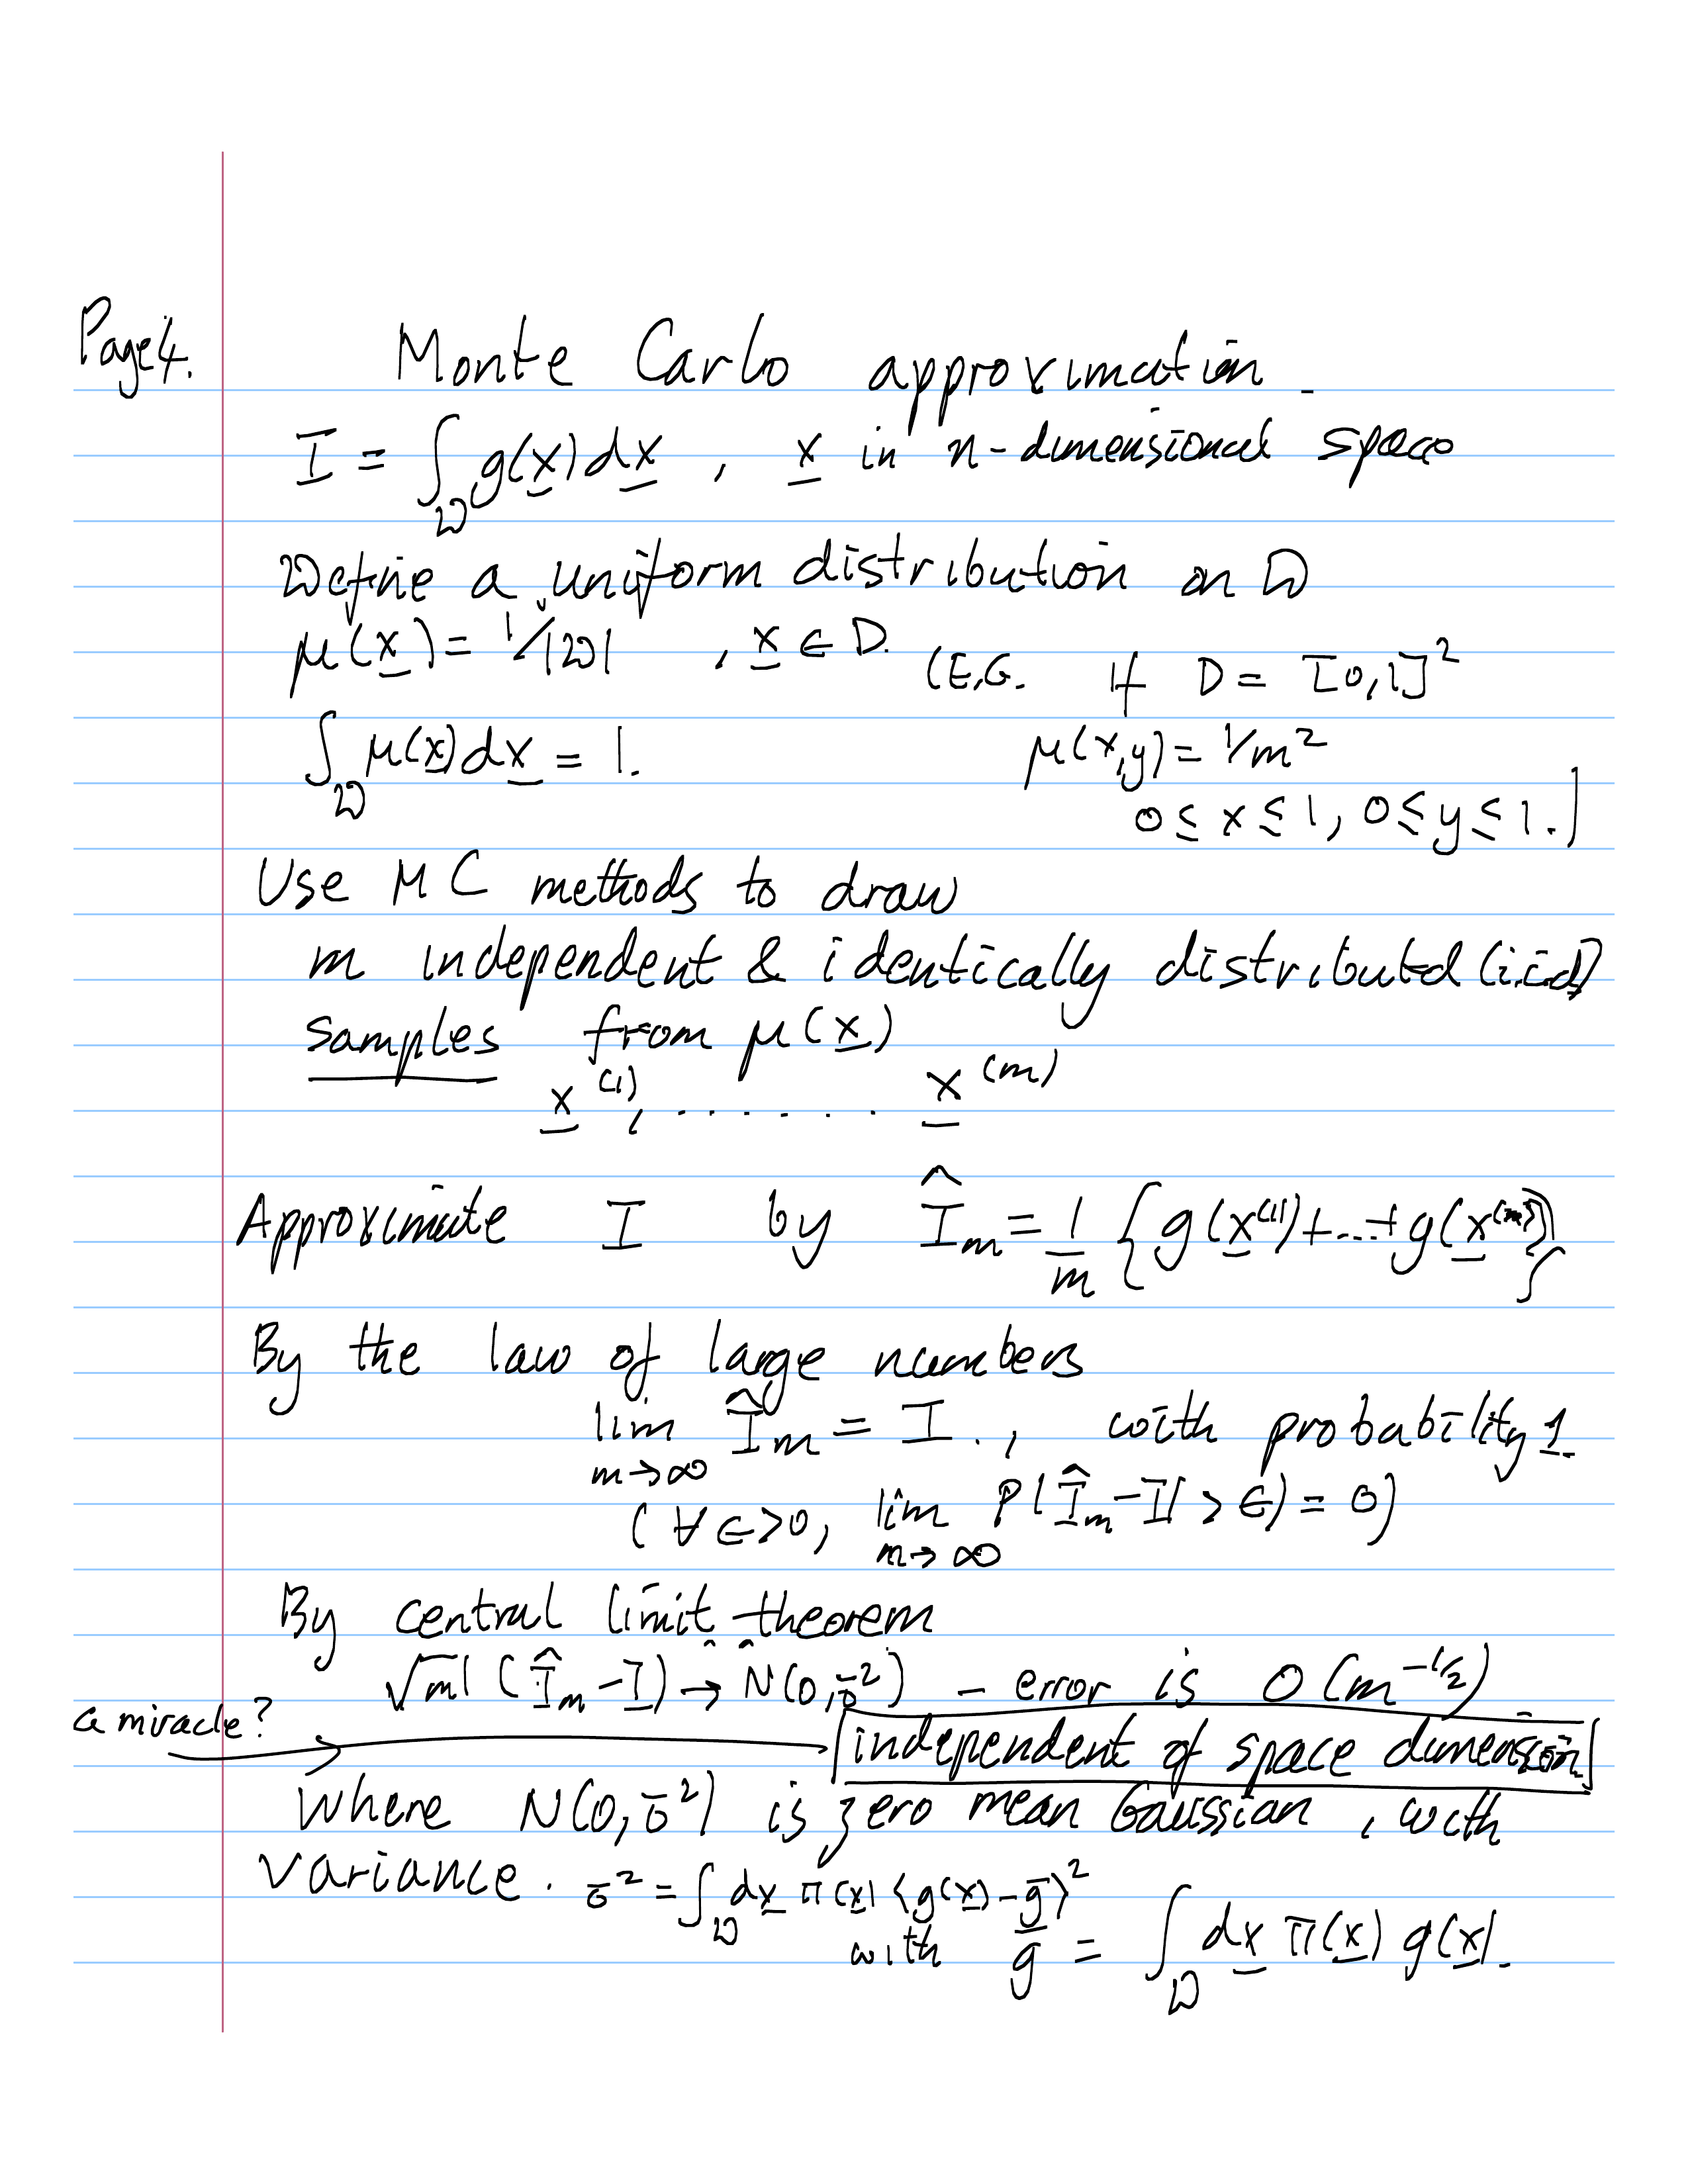 Page 4. Monte Carlo approximation.
I = ∫_D g(x) dx , x in n-dimensional space
Define a uniform distribution on D
μ(x) = 1/|D| , x ∈ D. (E.G. If D = [0,1]²
∫_D μ(x) dx = 1. μ(x,y) = 1/m²
0 ≤ x ≤ 1, 0 ≤ y ≤ 1.]
Use MC methods to draw
m independent & identically distributed (i.i.d)
samples from μ(x)
x^(1), . . . . . . . x^(m)
Approximate I by Î_m = 1/m {g(x^(1)) + ... + g(x^(m))}
By the law of large numbers
lim_{m→∞} Î_m = I . , with probability 1.
(∀ ∈ > 0, lim_{m→∞} P(|Î_m - I| > ∈) = 0)
By central limit theorem
√m (Î_m - I) → N(0, σ²) - error is O(m^{-1/2})
a miracle? → independent of space dimension
Where N(0, σ²) is zero mean Gaussian, with
variance. σ² = ∫_D dx π(x) (g(x) - g̅)²
with g̅ = ∫_D dx π(x) g(x).